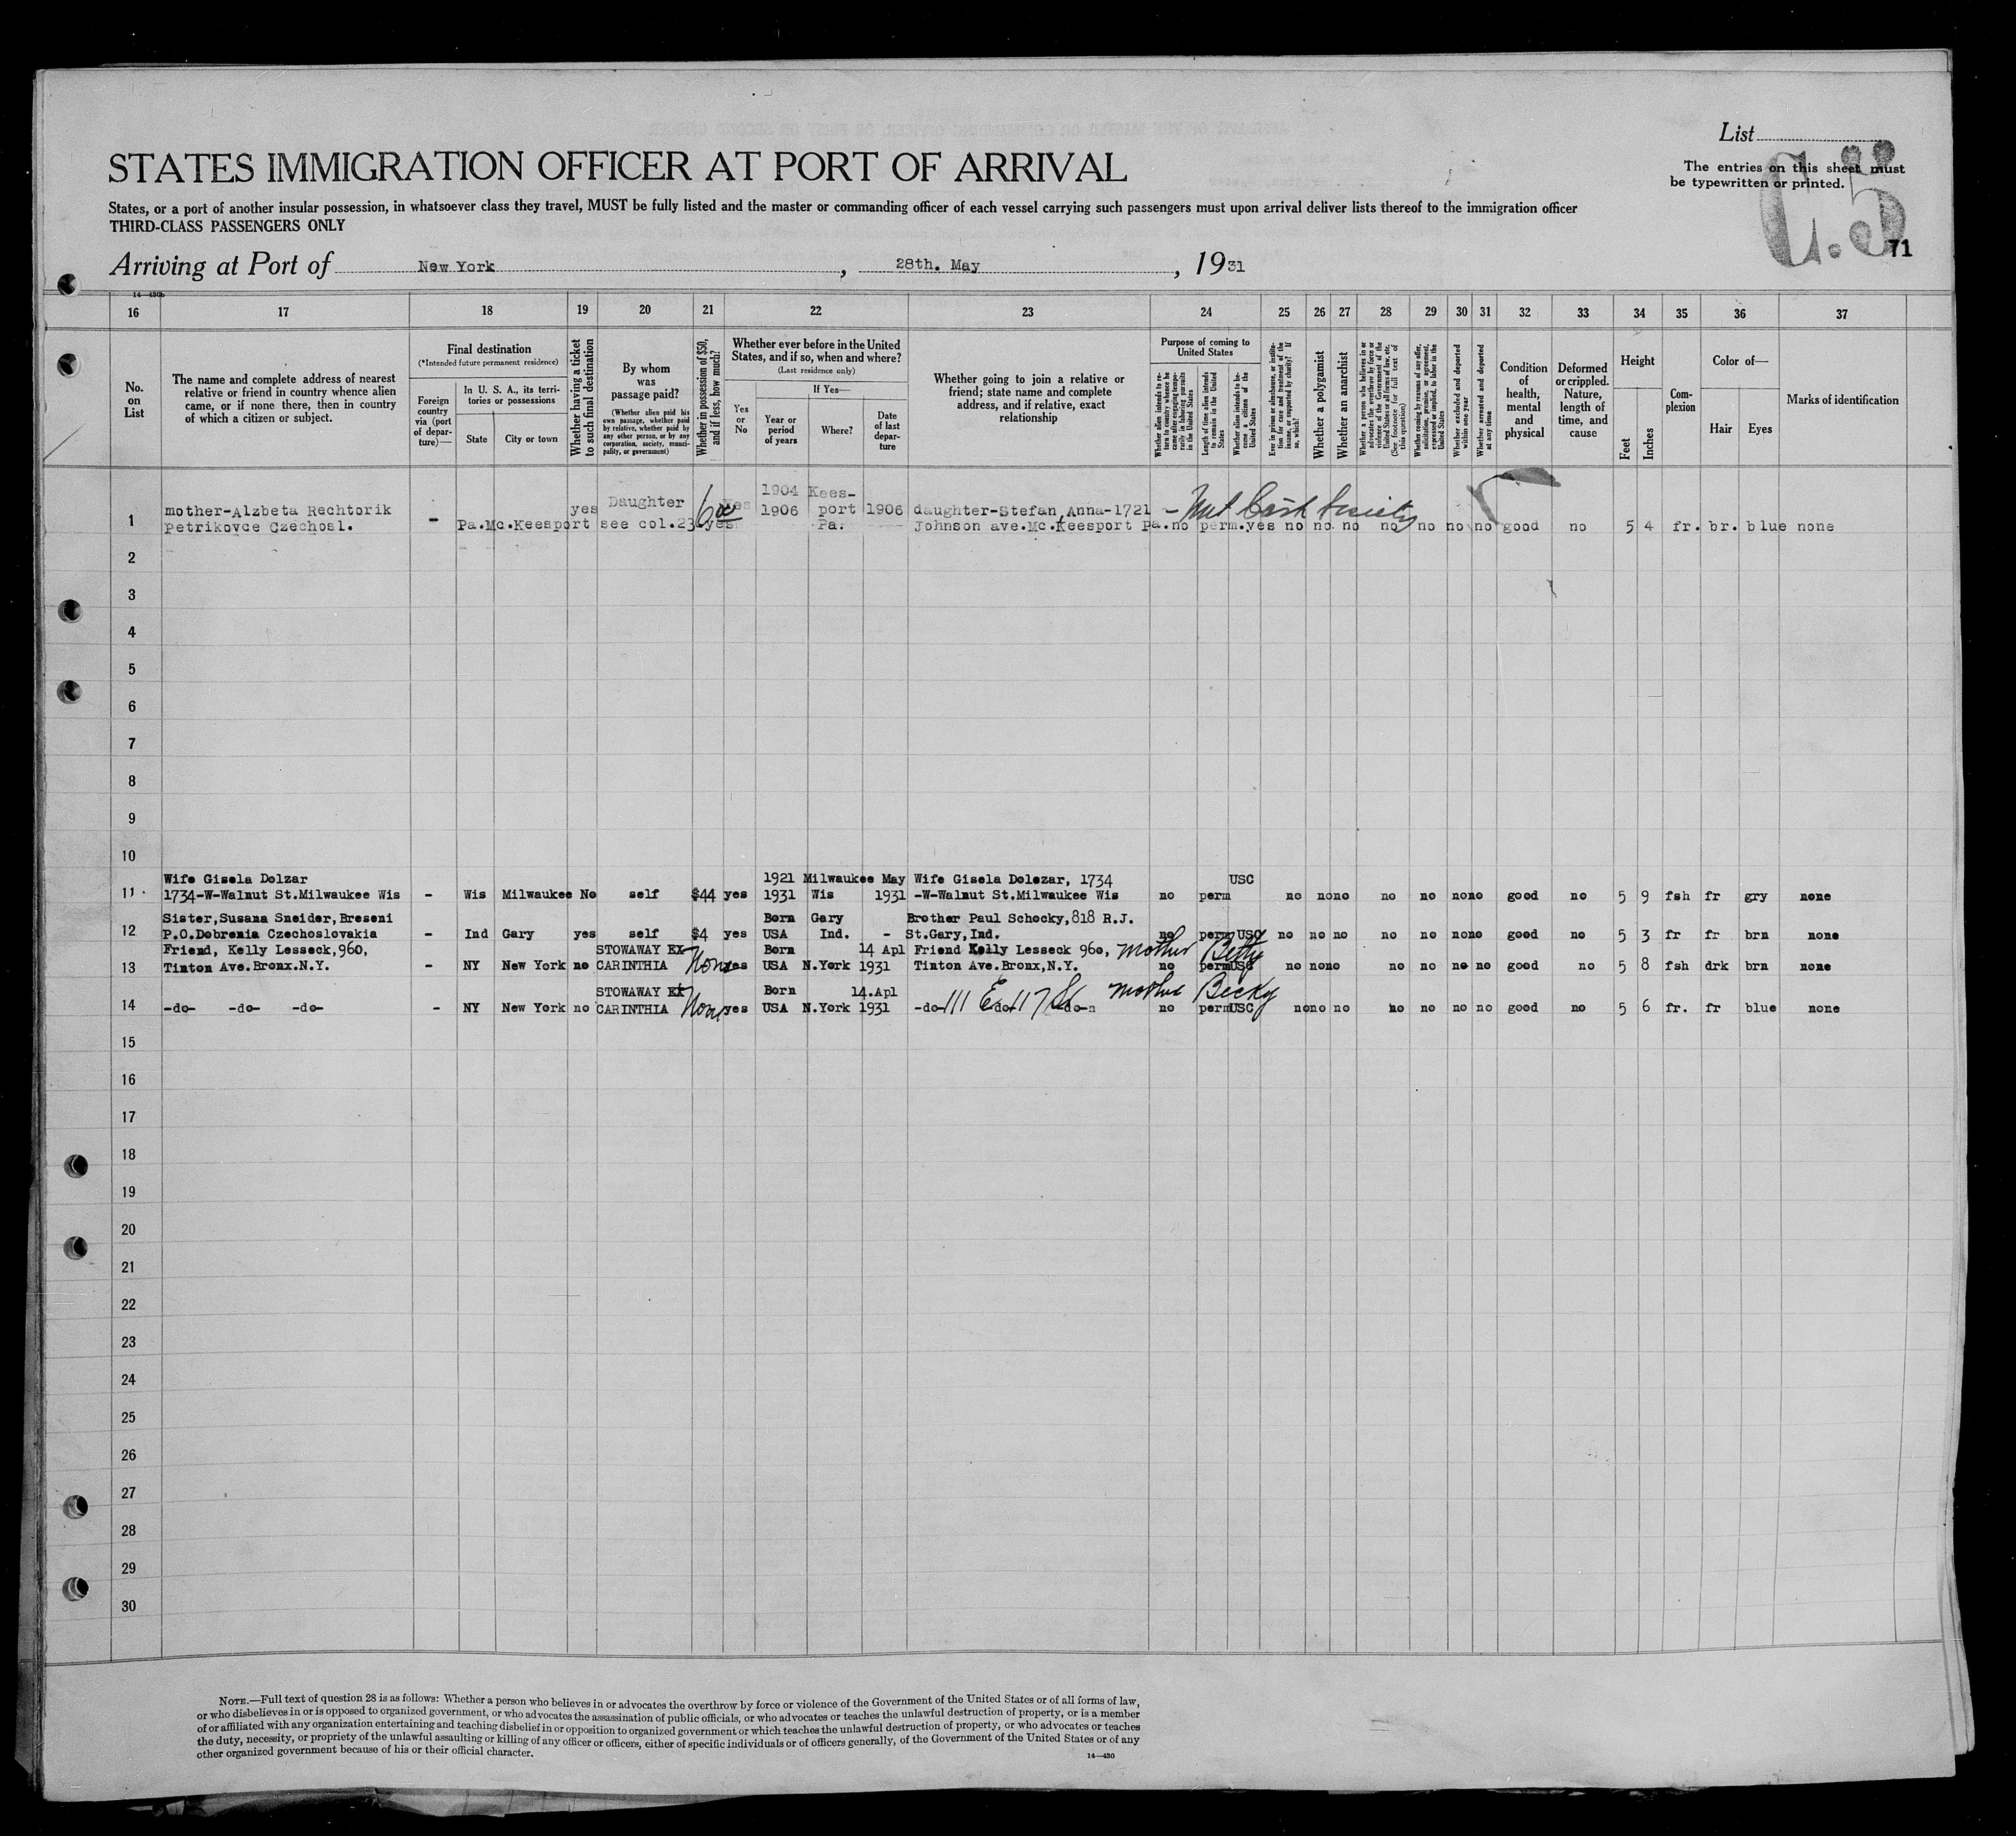 List
The entries on this sheet must
be typewritten or printed.
C.5
71
STATES IMMIGRATION OFFICER AT PORT OF ARRIVAL
States, or a port of another insular possession, in whatsoever class they travel, MUST be fully listed and the master or commanding officer of each vessel carrying such passengers must upon arrival deliver lists thereof to the immigration officer
THIRD-CLASS PASSENGERS ONLY
Arriving at Port of New York, 28th. May, 1931
14—430b
16 17 18 19 20 21 22 23 24 25 26 27 28 29 30 31 32 33 34 35 36 37
No.
on
List
The name and complete address of nearest
relative or friend in country whence alien
came, or if none there, then in country
of which a citizen or subject.
Final destination
(*Intended future permanent residence)
Foreign
country
via (port
of depar-
ture)—
In U. S. A., its terri-
tories or possessions
State
City or town
Whether having a ticket
to such final destination
By whom
was
passage paid?
(Whether alien paid his
own passage, whether paid
by relative, whether paid by
any other person, or by any
corporation, society, munici-
pality, or government)
Whether in possession of $50,
and if less, how much?
Whether ever before in the United
States, and if so, when and where?
(Last residence only)
Yes
or
No
If Yes—
Year or
period
of years
Where?
Date
of last
depar-
ture
Whether going to join a relative or
friend; state name and complete
address, and if relative, exact
relationship
Purpose of coming to
United States
Whether alien intends to re-
turn to country whence he
came after engaging tempo-
rarily in laboring pursuits
in the United States
Length of time alien intends
to remain in the United
States
Whether alien intends to be-
come a citizen of the
United States
Ever in prison or almshouse, or institu-
tion for care and treatment of the
insane, or supported by charity? If
so, which?
Whether a polygamist
Whether an anarchist
Whether a person who believes in or
advocates the overthrow by force or
violence of the Government of the
United States or all forms of law, etc.
(See footnote for full text of
this question)
Whether coming by reason of any offer,
solicitation, promise, or agreement,
expressed or implied, to labor in the
United States
Whether excluded and deported
within one year
Whether arrested and deported
at any time
Condition
of
health,
mental
and
physical
Deformed
or crippled.
Nature,
length of
time, and
cause
Height
Feet
Inches
Com-
plexion
Color of—
Hair
Eyes
Marks of identification
1904 Kees-
mother-Alzbeta Rechtorik yes Daughter yes 1906 port 1906 daughter-Stefan Anna-1721
1 Petrikovce Czechosl. - Pa. Mc.Keesport see col.23 60 yes Pa. Johnson ave.Mc.Keesport Pa. no perm. yes no no no no no no no good no 5 4 fr. br. blue none
2
3
4
5
6
7
8
9
10
Wife Gisela Dolzar 1921 Milwaukee May Wife Gisela Dolezar, 1734 USC
11 1734-W-Walnut St.Milwaukee Wis - Wis Milwaukee No self $44 yes 1931 Wis 1931 -W-Walnut St.Milwaukee Wis no perm no no no no no no no good no 5 9 fsh fr gry none
Sister,Susana Sneider,Breseni Born Gary Brother Paul Schocky,818 R.J.
12 P.O.Debrenia Czechoslovakia - Ind Gary yes self $4 yes USA Ind. - St.Gary,Ind. no perm USC no no no no no no no good no 5 3 fr fr brn none
Friend, Kelly Lesseck,960, STOWAWAY EX Born 14 Apl Friend Kelly Lesseck 960, mother Betty
13 Tinton Ave.Bronx.N.Y. - NY New York no CARINTHIA None yes USA N.York 1931 Tinton Ave.Bronx,N.Y. no perm USC no no no no no no no good no 5 8 fsh drk brn none
STOWAWAY EX Born 14.Apl mother Becky
14 -do- -do- -do- - NY New York no CARINTHIA None yes USA N.York 1931 -do- 111 E 117 St -do- -do- no perm USC no no no no no no no good no 5 6 fr. fr blue none
15
16
17
18
19
20
21
22
23
24
25
26
27
28
29
30
NOTE.—Full text of question 28 is as follows: Whether a person who believes in or advocates the overthrow by force or violence of the Government of the United States or of all forms of law,
or who disbelieves in or is opposed to organized government, or who advocates the assassination of public officials, or who advocates or teaches the unlawful destruction of property, or is a member
of or affiliated with any organization entertaining and teaching disbelief in or opposition to organized government or which teaches the unlawful destruction of property, or who advocates or teaches
the duty, necessity, or propriety of the unlawful assaulting or killing of any officer or officers, either of specific individuals or of officers generally, of the Government of the United States or of any
other organized government because of his or their official character.
14—430